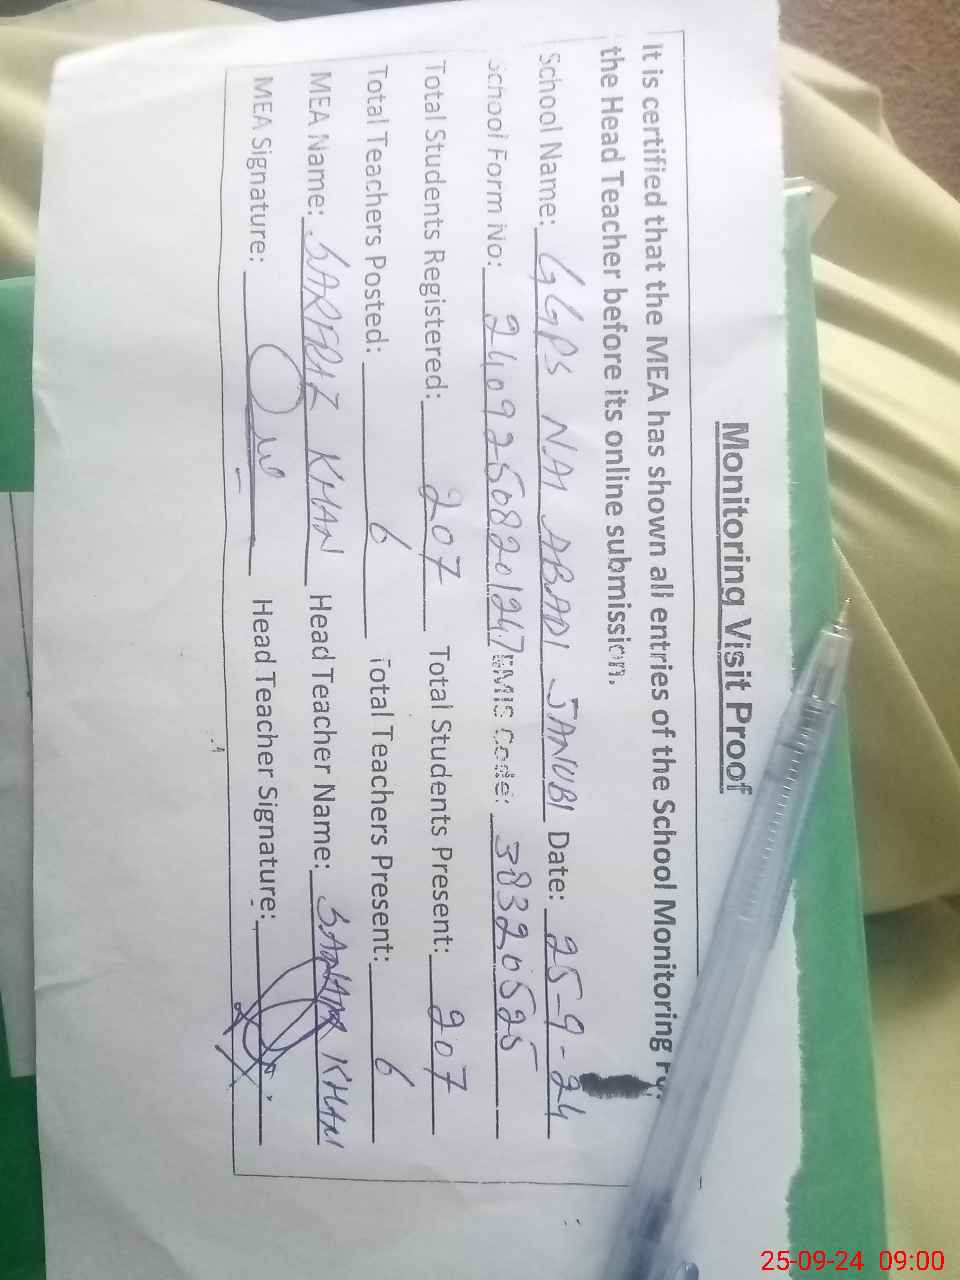 Monitoring Visit Proof
It is certified that the MEA has shown all entries of the School Monitoring
the Head Teacher before its online submission.
School Name: GGPS NAI ABADI JANUBI Date: 25-9-24
School Form No: 24092508201247 EMIS Code: 38320525
Total Students Registered: 207 Total Students Present: 207
Total Teachers Posted: 6 Total Teachers Present: 6
MEA Name: SARFRAZ KHAN Head Teacher Name: KHAN
MEA Signature: Head Teacher Signature:
25-09-24 09:00